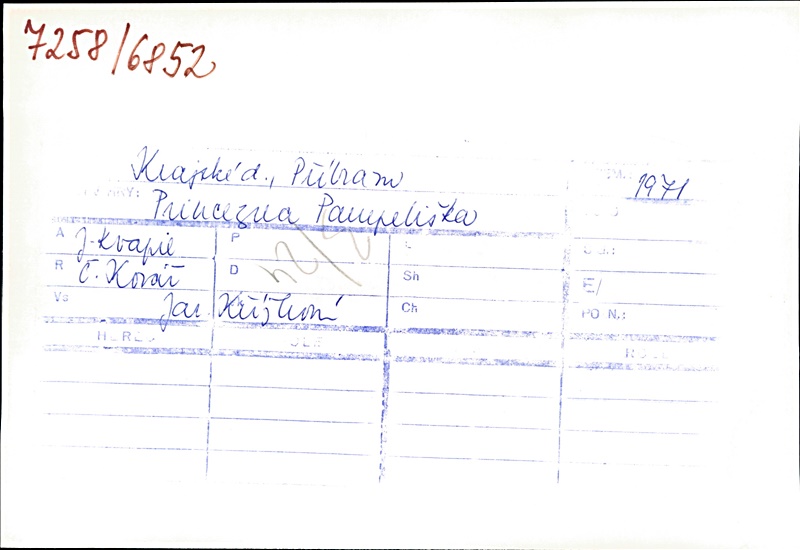 7258/6852
Krajské d., Příbram
1971
Princezna Pampeliška
A J. Kvapil P
R Č. Kovář D Sh E/
Vs Jar. Křížkovi Ch PO N.:
HEREC